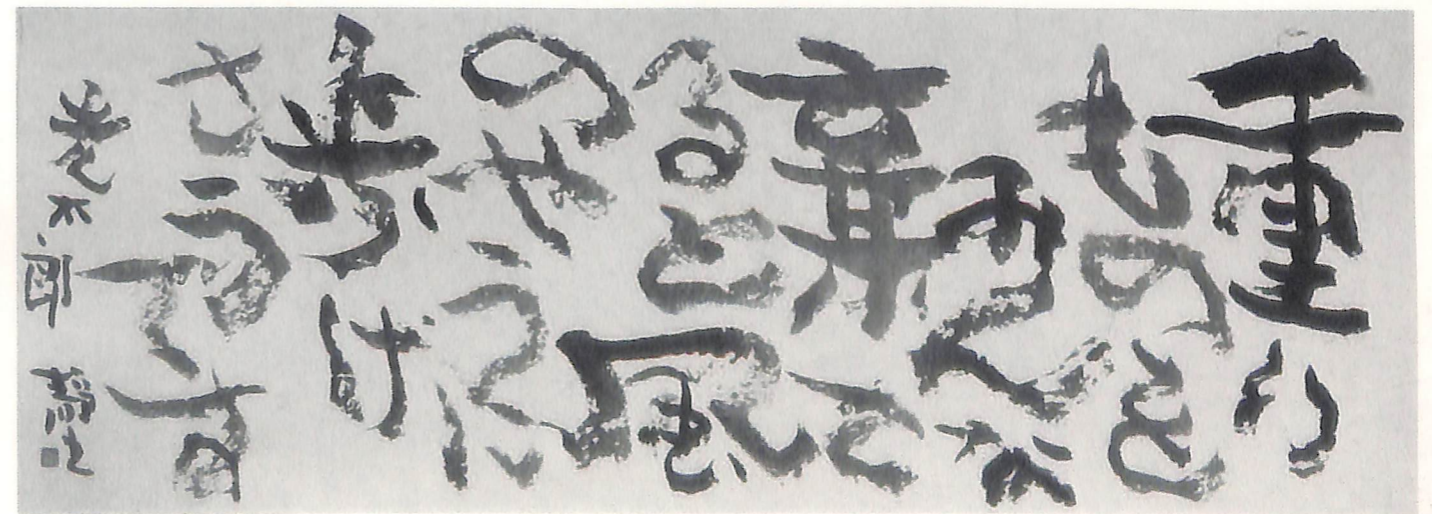 重い
ものを
みんな
棄て
ると風
のやうに
歩け
さうです
光太郎